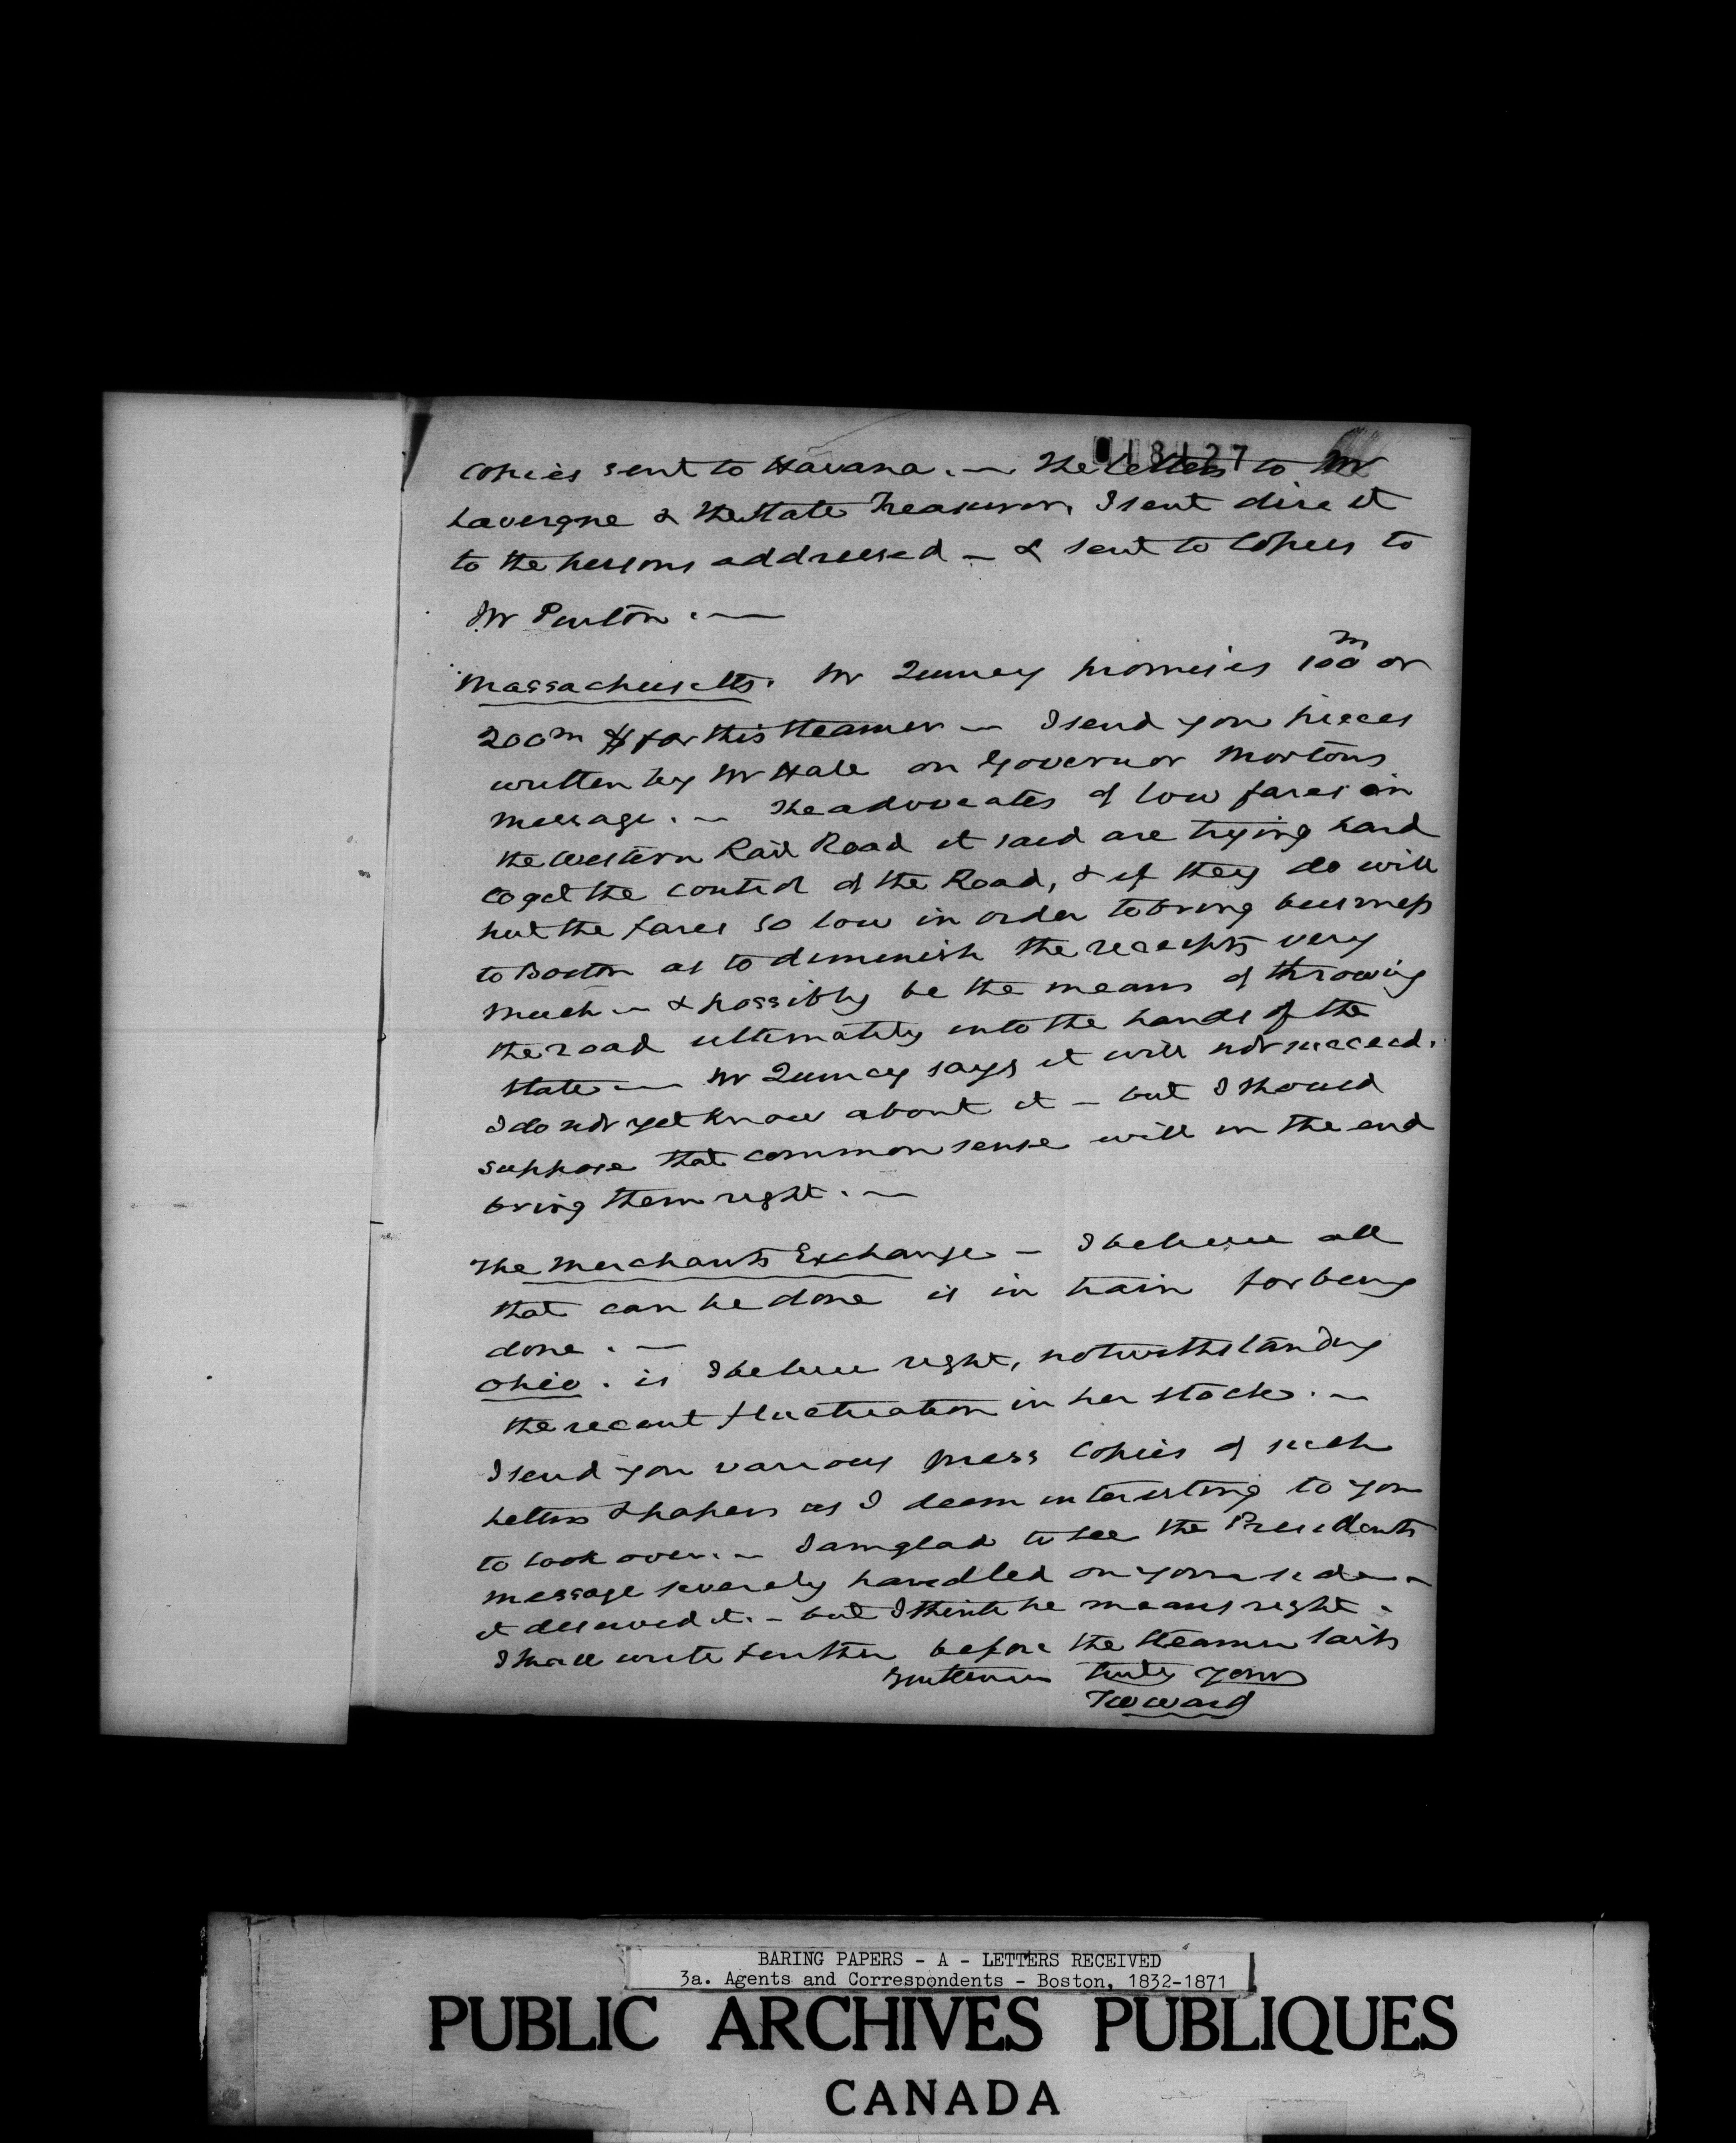 018127
copies sent to Havana. — The letters to Mr
Lavergne & the State Treasurer, I sent direct
to the persons addressed — & sent to Copies to
Mr Purton. —
Massachusetts. Mr Quincy promises 100m or
200m $ for this Steamer — I send you pieces
written by Mr Hale on Governor Mortons
message. — The advocates of low fares on
the Western Rail Road it said are trying hard
to get the control of the Road, & if they do will
put the fares so low in order to bring business
to Boston as to diminish the receipts very
much — & possibly be the means of throwing
the road ultimately into the hands of the
State — Mr Quincy says it will not succeed.
I do not yet know about it — but I should
suppose that common sense will in the end
bring them right. —
The Merchants Exchange — I believe all
that can be done is in train for being
done. —
Ohio. is I believe right, notwithstanding
the recent fluctuation in her stock. —
I send you various press copies of such
letters & papers as I deem interesting to you
to look over. — I am glad to see the Presidents
message severely handled on your side —
it deserved it. — but I think he means right.
I shall write further before the Steamer sails
Gentlemen truly yours
TWWard
BARING PAPERS - A - LETTERS RECEIVED
3a. Agents and Correspondents - Boston, 1832-1871
PUBLIC ARCHIVES PUBLIQUES
CANADA